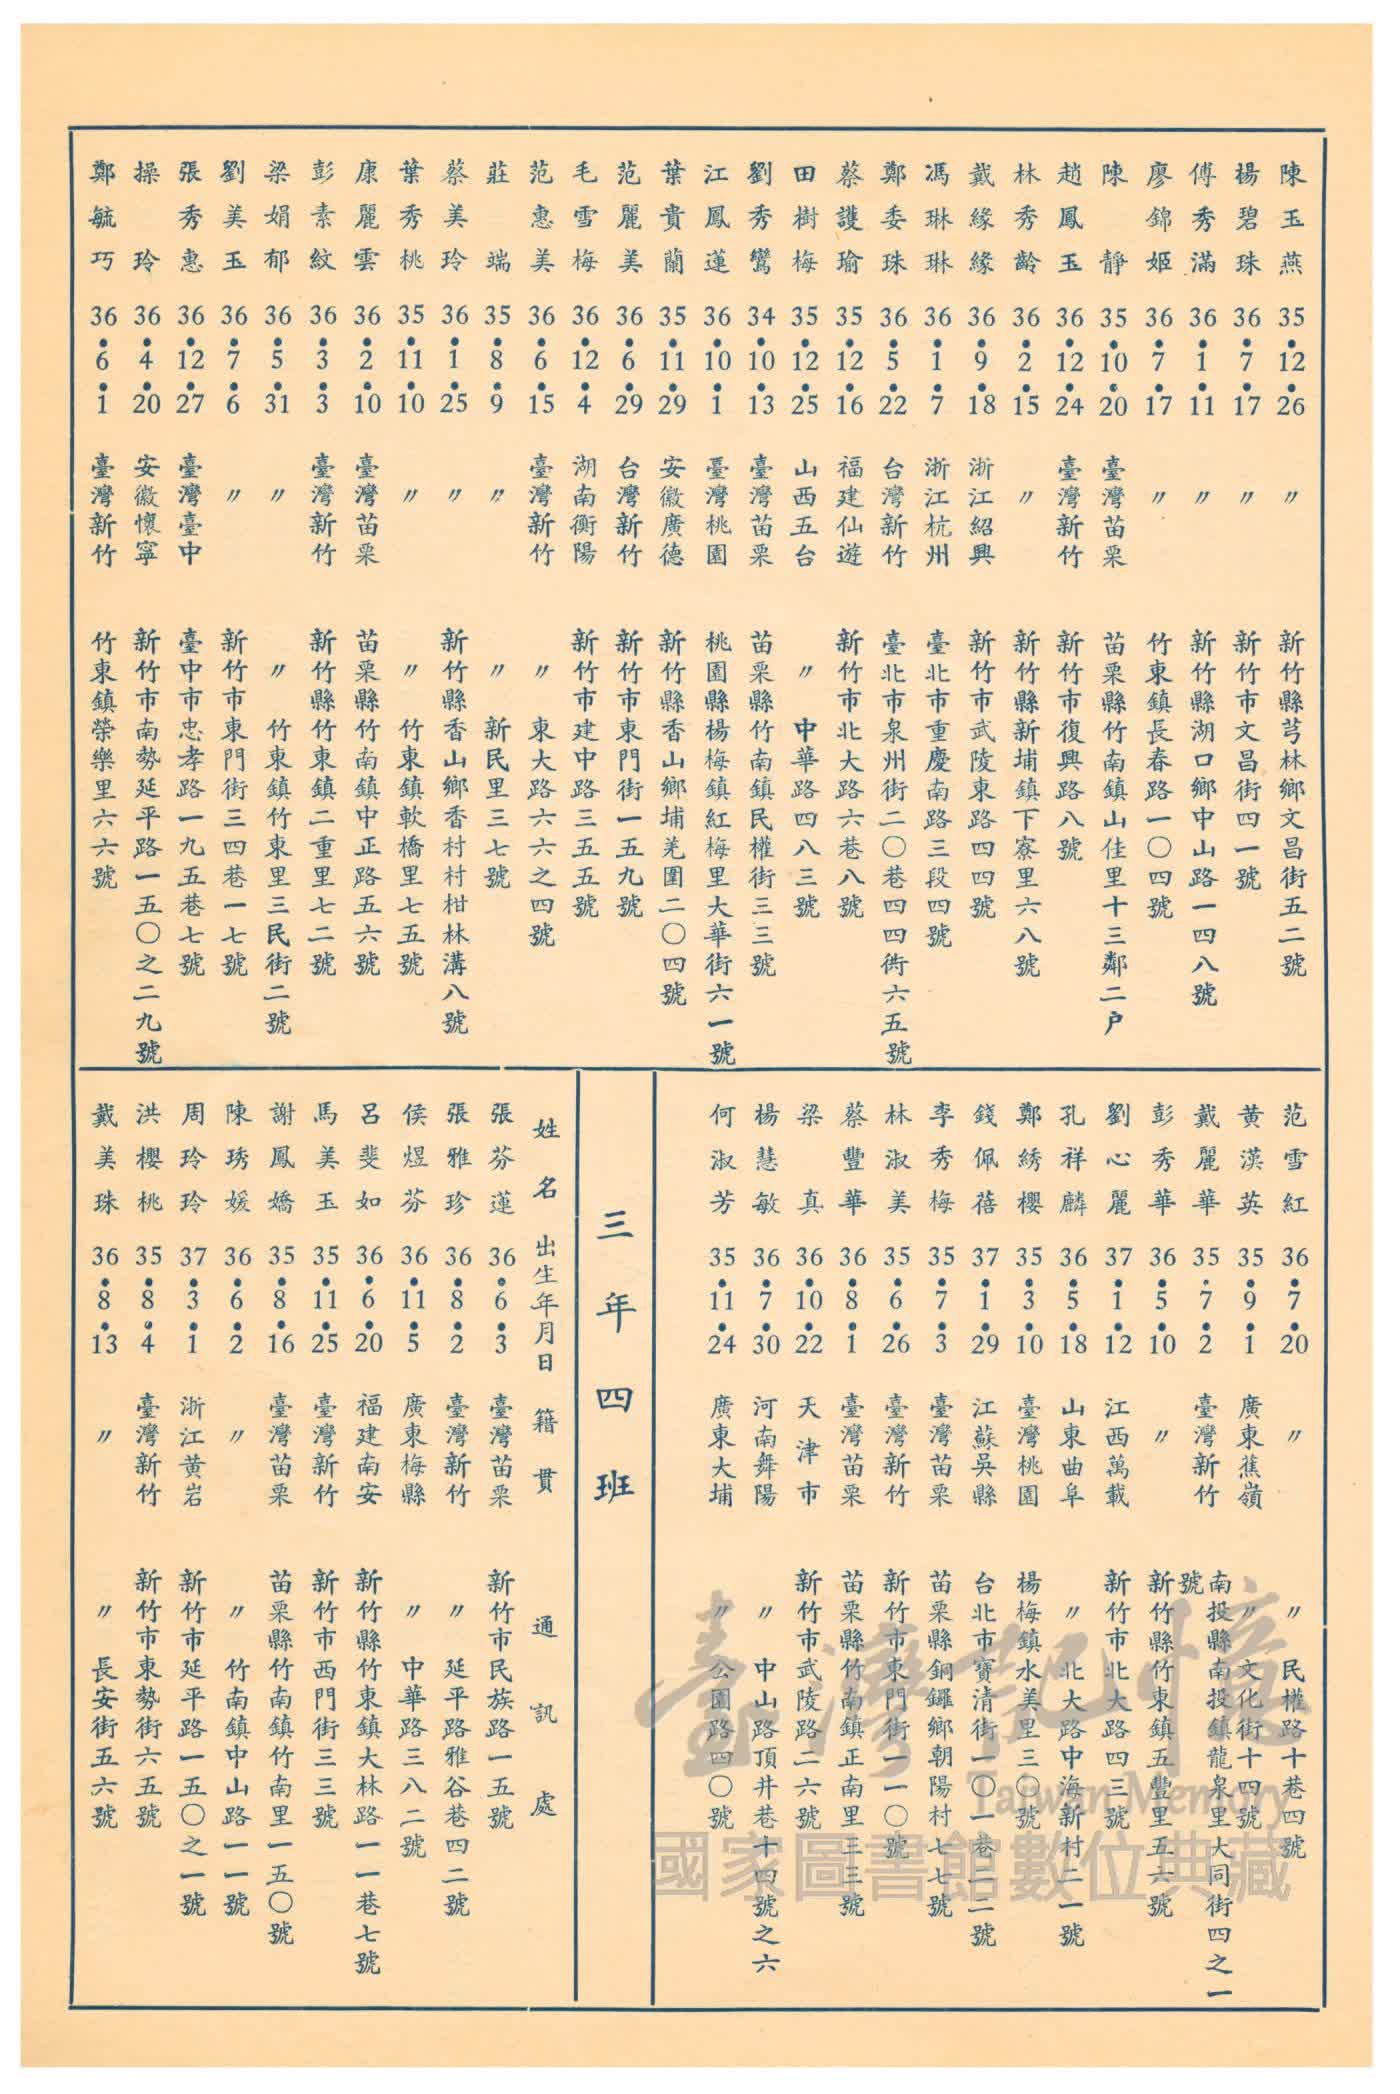 陳玉燕 35•12•26 〃 新竹縣芎林鄉文昌街五二號
楊碧珠 36•7•17 〃 新竹市文昌街四一號
傅秀滿 36•1•11 〃 新竹縣湖口鄉中山路一四八號
廖錦姬 36•7•17 〃 竹東鎮長春路一〇四號
陳靜 35•10•20 臺灣苗栗 苗栗縣竹南鎮山佳里十三鄰二戶
趙鳳玉 36•12•24 臺灣新竹 新竹市復興路八號
林秀齡 36•2•15 〃 新竹縣新埔鎮下寮里六八號
戴緣緣 36•9•18 浙江紹興 新竹市武陵東路四四號
馮琳琳 36•1•7 浙江杭州 臺北市重慶南路三段四號
鄭委珠 36•5•22 台灣新竹 臺北市泉州街二〇巷四四衖六五號
蔡護瑜 35•12•16 福建仙遊 新竹市北大路六巷八號
田樹梅 35•12•25 山西五台 〃 中華路四八三號
劉秀鸞 34•10•13 臺灣苗栗 苗栗縣竹南鎮民權街三三號
江鳳蓮 36•10•1 臺灣桃園 桃園縣楊梅鎮紅梅里大華街六一號
葉貴蘭 35•11•29 安徽廣德 新竹縣香山鄉埔羌圍二〇四號
范麗美 36•6•29 台灣新竹 新竹市東門街一五九號
毛雪梅 36•12•4 湖南衡陽 新竹市建中路三五五號
范惠美 36•6•15 臺灣新竹 〃 東大路六六之四號
莊端 35•8•9 〃 〃 新民里三七號
蔡美玲 36•1•25 〃 新竹縣香山鄉香村村柑林溝八號
葉秀桃 35•11•10 〃 〃 竹東鎮軟橋里七五號
康麗雲 36•2•10 臺灣苗栗 苗栗縣竹南鎮中正路五六號
彭素紋 36•3•3 臺灣新竹 新竹縣竹東鎮二重里七二號
梁娟郁 36•5•31 〃 〃 竹東鎮竹東里三民街二號
劉美玉 36•7•6 〃 新竹市東門街三四巷一七號
張秀惠 36•12•27 臺灣臺中 臺中市忠孝路一九五巷七號
操玲 36•4•20 安徽懷寧 新竹市南勢延平路一五〇之二九號
鄭毓巧 36•6•1 臺灣新竹 竹東鎮榮樂里六六號
范雪紅 36•7•20 〃 〃 民權路十巷四號
黃漢英 35•9•1 廣東蕉嶺 〃 文化街十四號
戴麗華 35•7•2 臺灣新竹 南投縣南投鎮龍泉里大同街四之一號
彭秀華 36•5•10 〃 新竹縣竹東鎮五豐里五六號
劉心麗 37•1•12 江西萬載 新竹市北大路四三號
孔祥麟 36•5•18 山東曲阜 〃 北大路中海新村二一號
鄭綉櫻 35•3•10 臺灣桃園 楊梅鎮水美里三〇號
錢佩蓓 37•1•29 江蘇吳縣 台北市寶清街一〇一巷二二號
李秀梅 35•7•3 臺灣苗栗 苗栗縣銅鑼鄉朝陽村七七號
林淑美 35•6•26 臺灣新竹 新竹市東門街一一〇號
蔡豐華 36•8•1 臺灣苗栗 苗栗縣竹南鎮正南里三三號
梁真 36•10•22 天津市 新竹市武陵路二六號
楊慧敏 36•7•30 河南舞陽 〃 中山路頂井巷十四號之六
何淑芳 35•11•24 廣東大埔 〃 公園路四〇號
三年四班
姓名 出生年月日 籍貫 通訊處
張芬蓮 36•6•3 臺灣苗栗 新竹市民族路一五號
張雅珍 36•8•2 臺灣新竹 〃 延平路雅谷巷四二號
侯煜芬 36•11•5 廣東梅縣 〃 中華路三八二號
呂斐如 36•6•20 福建南安 新竹縣竹東鎮大林路一一巷七號
馬美玉 35•11•25 臺灣新竹 新竹市西門街三三號
謝鳳嬌 35•8•16 臺灣苗栗 苗栗縣竹南鎮竹南里一五〇號
陳琇媛 36•6•2 〃 〃 竹南鎮中山路一一一號
周玲玲 37•3•1 浙江黄岩 新竹市延平路一五〇之一號
洪櫻桃 35•8•4 臺灣新竹 新竹市東勢街六五號
戴美珠 36•8•13 〃 〃 長安街五六號
臺灣記憶
Taiwan Memory
國家圖書館數位典藏